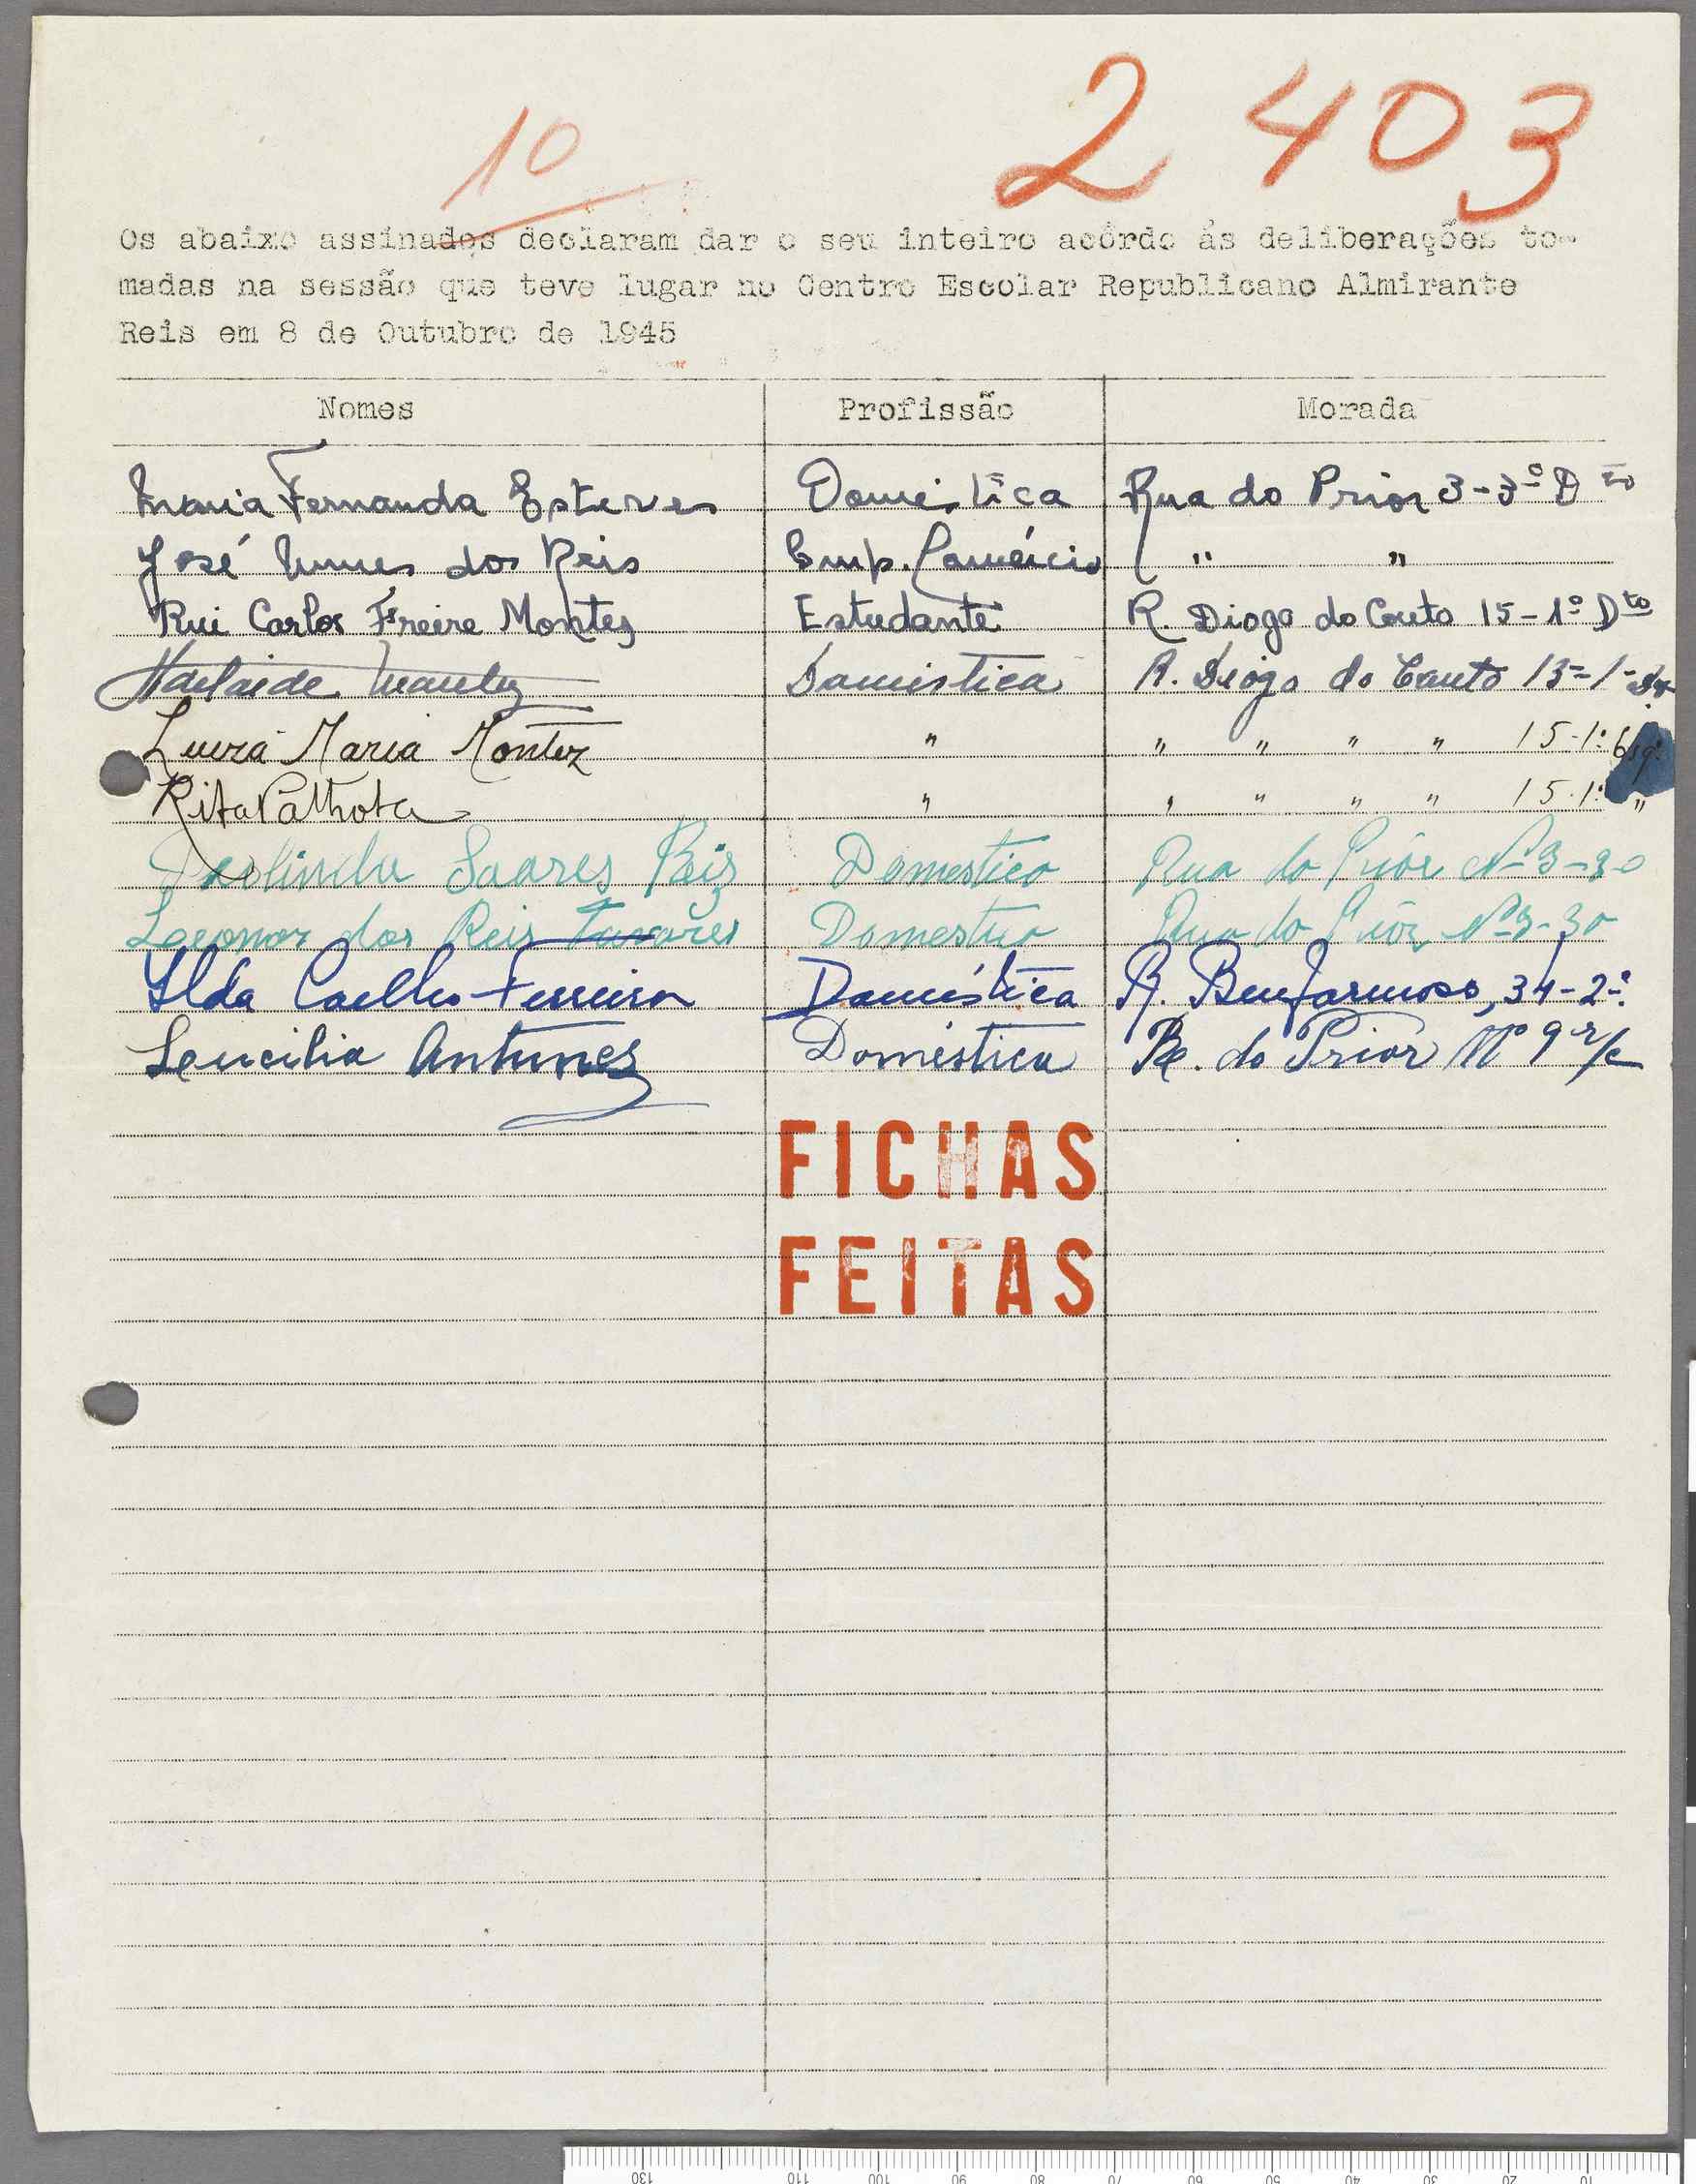 10
2 403
Os abaixo assinados declaram dar o seu inteiro acôrdo ás deliberações to-
madas na sessão que teve lugar no Centro Escolar Republicano Almirante
Reis em 8 de Outubro de 1945
Nomes Profissão Morada
Maria Fernanda Esteves Doméstica Rua do Prior 3-3º Dto
José Nunes dos Reis Emp. Comércio " "
Rui Carlos Freire Montez Estudante R. Diogo do Couto 15-1º Dto
Adelaide Montez Doméstica R. Diogo do Couto 15-1-
Luiza Maria Montez " " " " " 15-1º Esq.
Rita Palhota " " " " " 15-1º "
Deolinda Soares Reis Domestico Rua do Priôr Nº 3-3º
Leonor dos Reis Tavares Domestico Rua do Priôr Nº 3-3º
Ilda Coelho Ferreira Doméstica R. Benformoso, 34-2º.
Leucilia Antunes Doméstica R. do Prior Nº 9 r/c
FICHAS
FEITAS
130 110 100 90 80 70 60 50 40 30 20 10